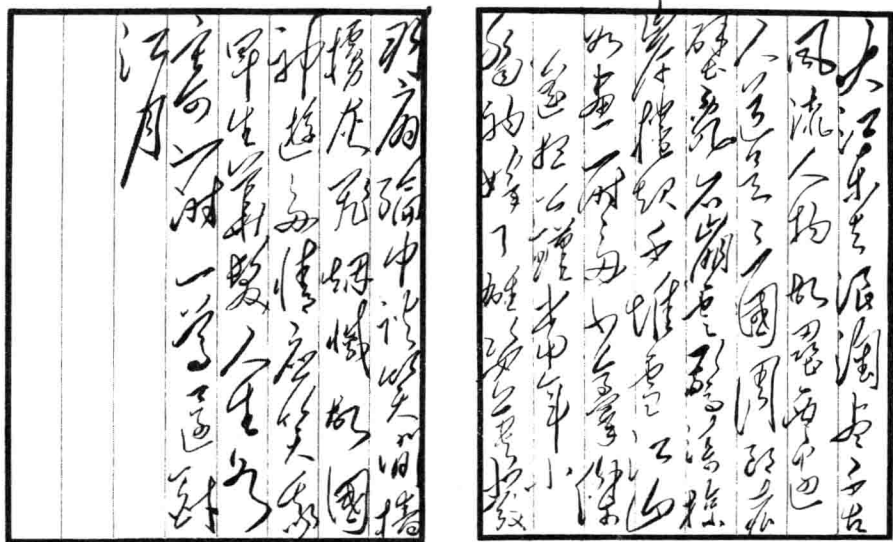 大江东去浪淘尽千古
风流人物故垒西边
人道是三國周郎赤
壁乱石崩雲驚涛掠
岸捲起千堆雪江山
如畫一時多少豪傑
遥想公瑾當年小
喬初嫁了雄姿英發
羽扇綸巾談笑間檣
櫓灰飛烟滅故國
神遊多情應笑我
早生華髮人生如
一尊還酹
江月